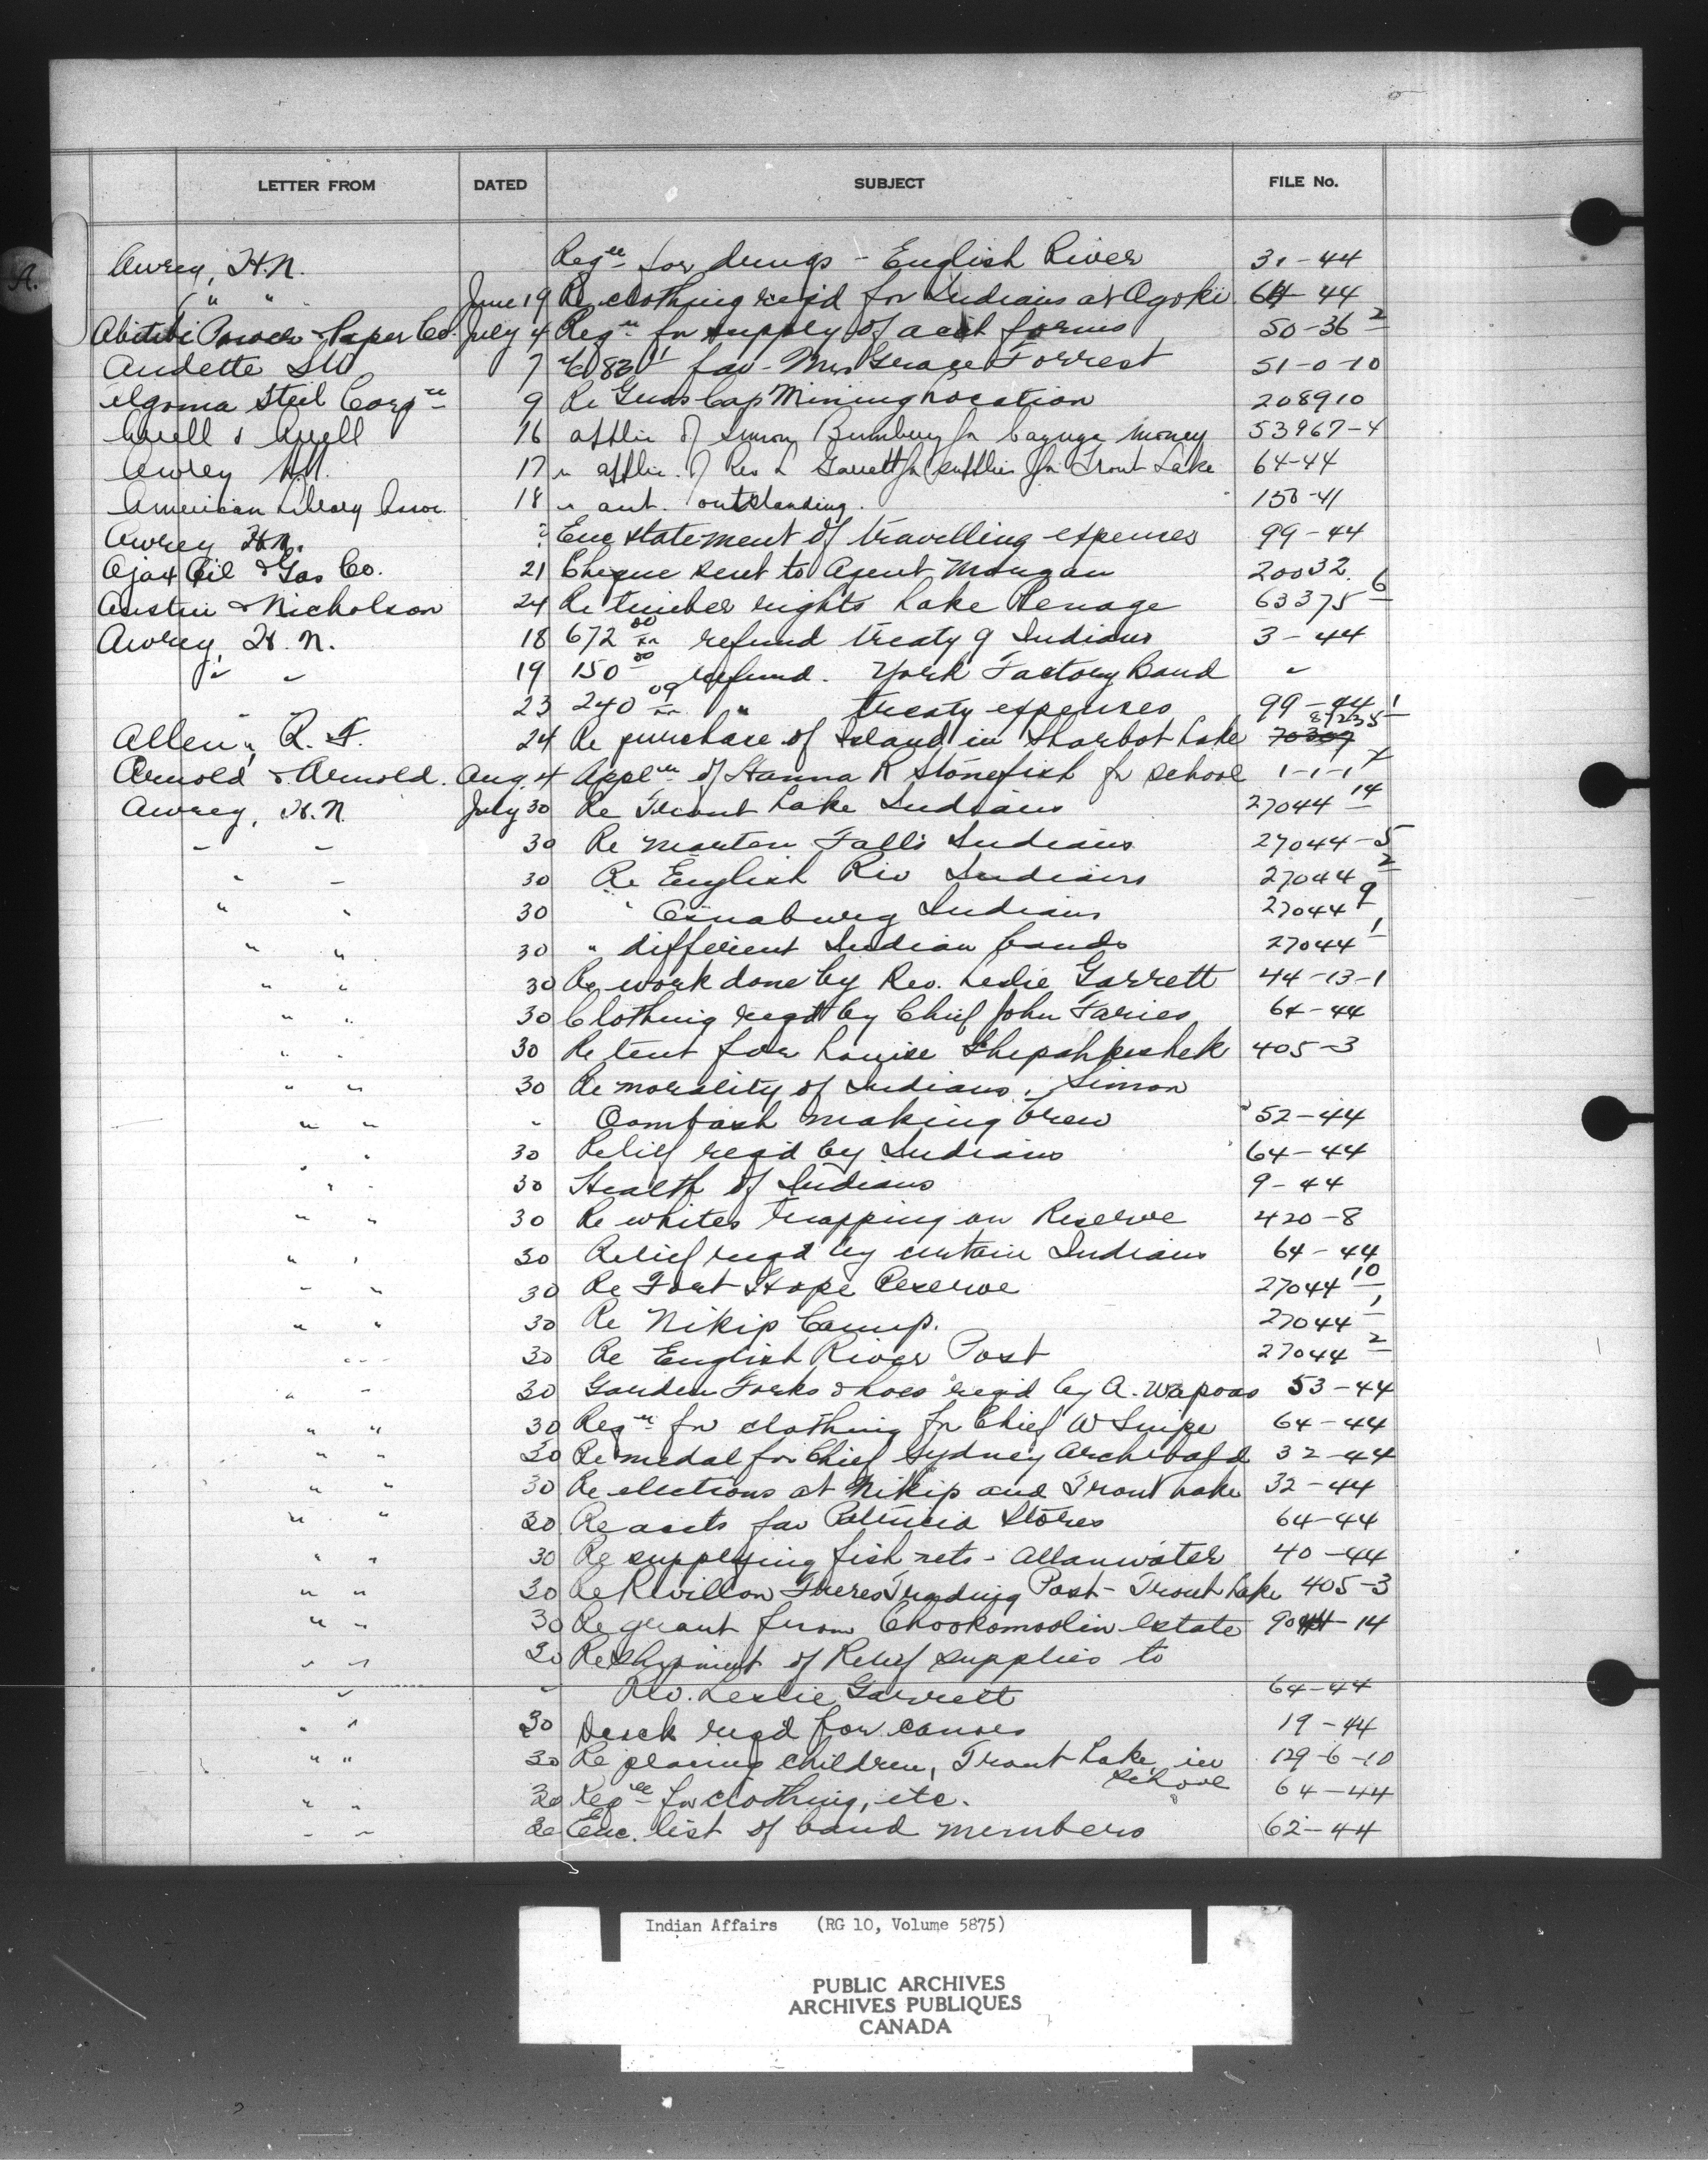 LETTER FROM DATED SUBJECT FILE No.
A.
Awrey, H.N. Reqn for drugs - English River 31-44
" " June 19 Re clothing req'd for Indians at Ogoki 64-44
Abitibi Power & Paper Co. July 4 Reqn for supply of acct forms 50-36 2
Audette LW 7 fav. Mrs Grace Forrest 51-0-10
Algoma Steel Corpn 9 Re Gros Cap Mining Location 208910
16 applic of Simon Bumbery for Cayuga money 53967-4
Awrey HN. 17 " applic. of Rev L Garrett for supplies for Trout Lake 64-44
American Library Assoc. 18 " acct. outstanding. 150-41
Awrey H.N. Enc statement of travelling expenses 99-44
Ajax Oil & Gas Co. 21 Cheque sent to Agent Morgan 20032
Austin & Nicholson 24 Re timber rights Lake Penage 63375 6
Awrey, H.N. 18 672 00 refund treaty 9 Indians 3-44
" " 19 150 00 refund. York Factory Band "
" " 23 240 09 " treaty expenses 99-44 1
Allen, R. F. 24 Re purchase of Island in Sharbot Lake 70309
Arnold & Arnold. Aug. 4 Appln of Hanna R Stonefish for school 1-1-1
Awrey, H.N. July 30 Re Trout Lake Indians 27044 14
" " 30 Re Marten Falls Indians 27044-5
" " 30 Re English Riv Indians 27044 2
" " 30 " Osnaburg Indians 27044 9
" " 30 " different Indian bands 27044 1
" " 30 Re work done by Rev. Leslie Garrett 44-13-1
" " 30 Clothing reqd by Chief John Faries 64-44
" " 30 Re tent for Louise Shepahkeshek 405-3
" " 30 Re morality of Indians, Simon
" " " Oombash making brew 52-44
" " 30 Relief reqd by Indians 64-44
" " 30 Health of Indians 9-44
" " 30 Re whites trapping on Reserve 420-8
" " 30 Relief reqd by certain Indians 64-44
" " 30 Re Fort Hope Reserve 27044 10
" " 30 Re Nikip Camp. 27044 1
" " 30 Re English River Post 27044 2
" " 30 Garden Forks & hoes req'd by A. Wapoos 53-44
" " 30 Reqn for clothing for Chief W Snipe 64-44
" " 30 Re medal for Chief Sydney Archibald 32-44
" " 30 Re elections at Nikip and Trout Lake 32-44
" " 30 Re accts fav Patricia Stores 64-44
" " 30 Re supplying fish nets - Allanwater 40-44
" " 30 Re Revillon Freres Trading Post - Trout Lake 405-3
" " 30 Re grant from Chookomoolin estate 90-14
" " 30 Re shipment of Relief supplies to
" " Rev. Leslie Garrett 64-44
" " 30 Duck reqd for canoes 19-44
" " 30 Re placing children, Trout Lake, in 129-6-10
school
" " 30 Reqn for clothing, etc. 64-44
" " 30 Enc. list of band members 62-44
Indian Affairs (RG 10, Volume 5875)
PUBLIC ARCHIVES
ARCHIVES PUBLIQUES
CANADA